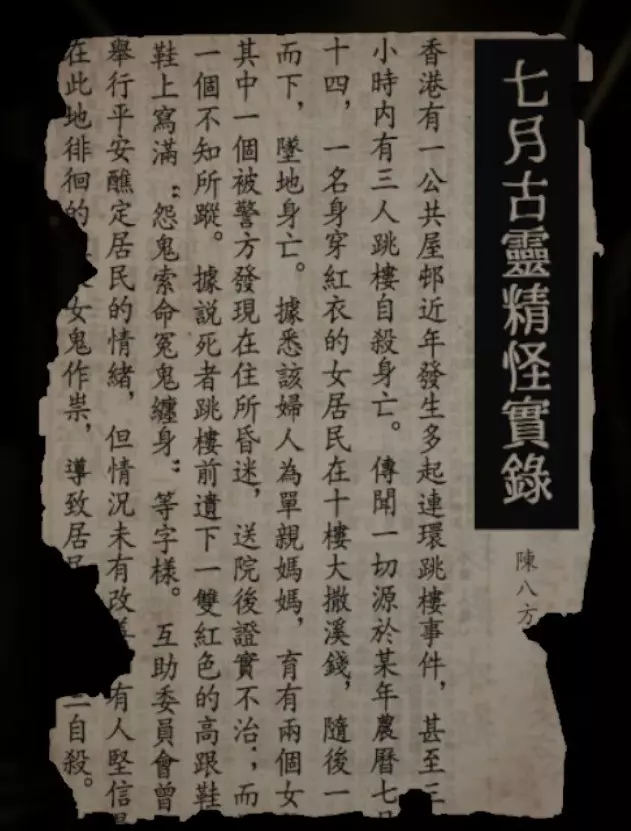 七月古靈精怪實錄
陳八方
香港有一公共屋邨近年發生多起連環跳樓事件，甚至三
小時內有三人跳樓自殺身亡。傳聞一切源於某年農曆七月
十四，一名身穿紅衣的女居民在十樓大撒溪錢，隨後一
而下，墜地身亡。據悉該婦人為單親媽媽，育有兩個女
其中一個被警方發現在住所昏迷，送院後證實不治；而
一個不知所蹤。據說死者跳樓前遺下一雙紅色的高跟鞋
鞋上寫滿〝怨鬼索命冤鬼纏身〞等字樣。互助委員會曾
舉行平安醮定居民的情緒，但情況未有改 有人堅信
在此地徘徊的 女鬼作祟，導致居 自殺。